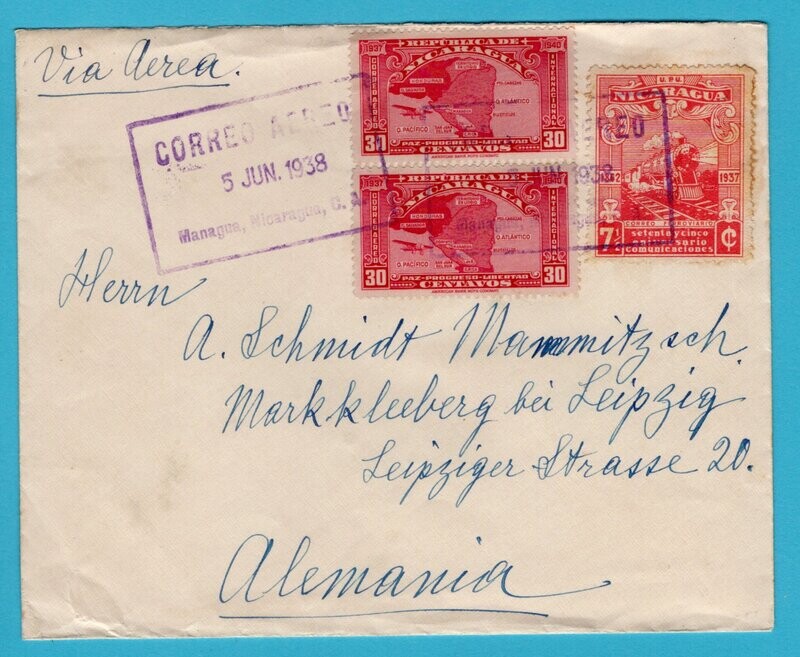 Via Aerea.
CORREO AEREO
5 JUN. 1938
Managua, Nicaragua, C. A.
1937 REPUBLICA DE 1940
NICARAGUA
CORREO AEREO
INTERNACIONAL
HONDURAS
O. ATLÁNTICO
O. PACÍFICO
30 PAZ-PROGRESO-LIBERTAD 30
CENTAVOS
AMERICAN BANK NOTE COMPANY
1937 REPUBLICA DE 1940
NICARAGUA
CORREO AEREO
INTERNACIONAL
HONDURAS
O. ATLÁNTICO
O. PACÍFICO
30 PAZ-PROGRESO-LIBERTAD 30
CENTAVOS
AMERICAN BANK NOTE COMPANY
U.P.U.
NICARAGUA
1937
CORREO FERROVIARIO
7½ setenta y cinco ¢
aniversario
comunicaciones
EO
JUN. 1938
Herrn
A. Schmidt Mammitzsch.
Markkleeberg bei Leipzig
Leipziger Strasse 20.
Alemania